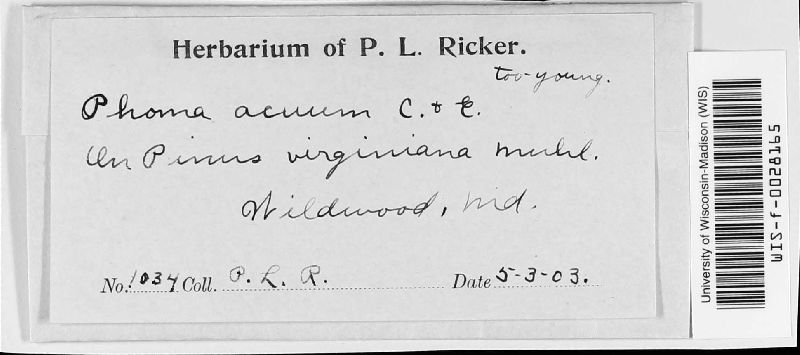 Herbarium of P. L. Ricker.
too-young.
Phoma acuum C. & E.
On Pinus virginiana Muhl.
Wildwood, Md.
No. 1034 Coll. P. L. R. Date 5-3-03.
University of Wisconsin-Madison (WIS)
WIS-f-0028165